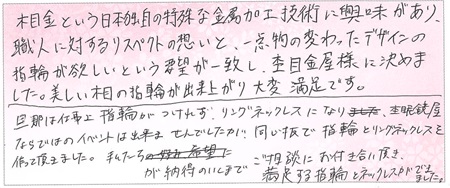 木目金という日本独自の特殊な金属加工技術に興味があり、
職人に対するリスペクトの想いと、一点物の変わったデザインの
指輪が欲しいという要望が一致し、杢目金屋様に決めま
した。美しい木目の指輪が出来上がり大変満足です。
旦那は仕事上指輪がつけれず、リングネックレスになり、杢目金屋
ならではのイベントは出来ませんでしたが、同じ板で指輪とリングネックレスを
作って頂きました。私たち
が納得のいくまで
ご相談にお付き合い頂き、
満足する指輪とネックレスができ
ました。